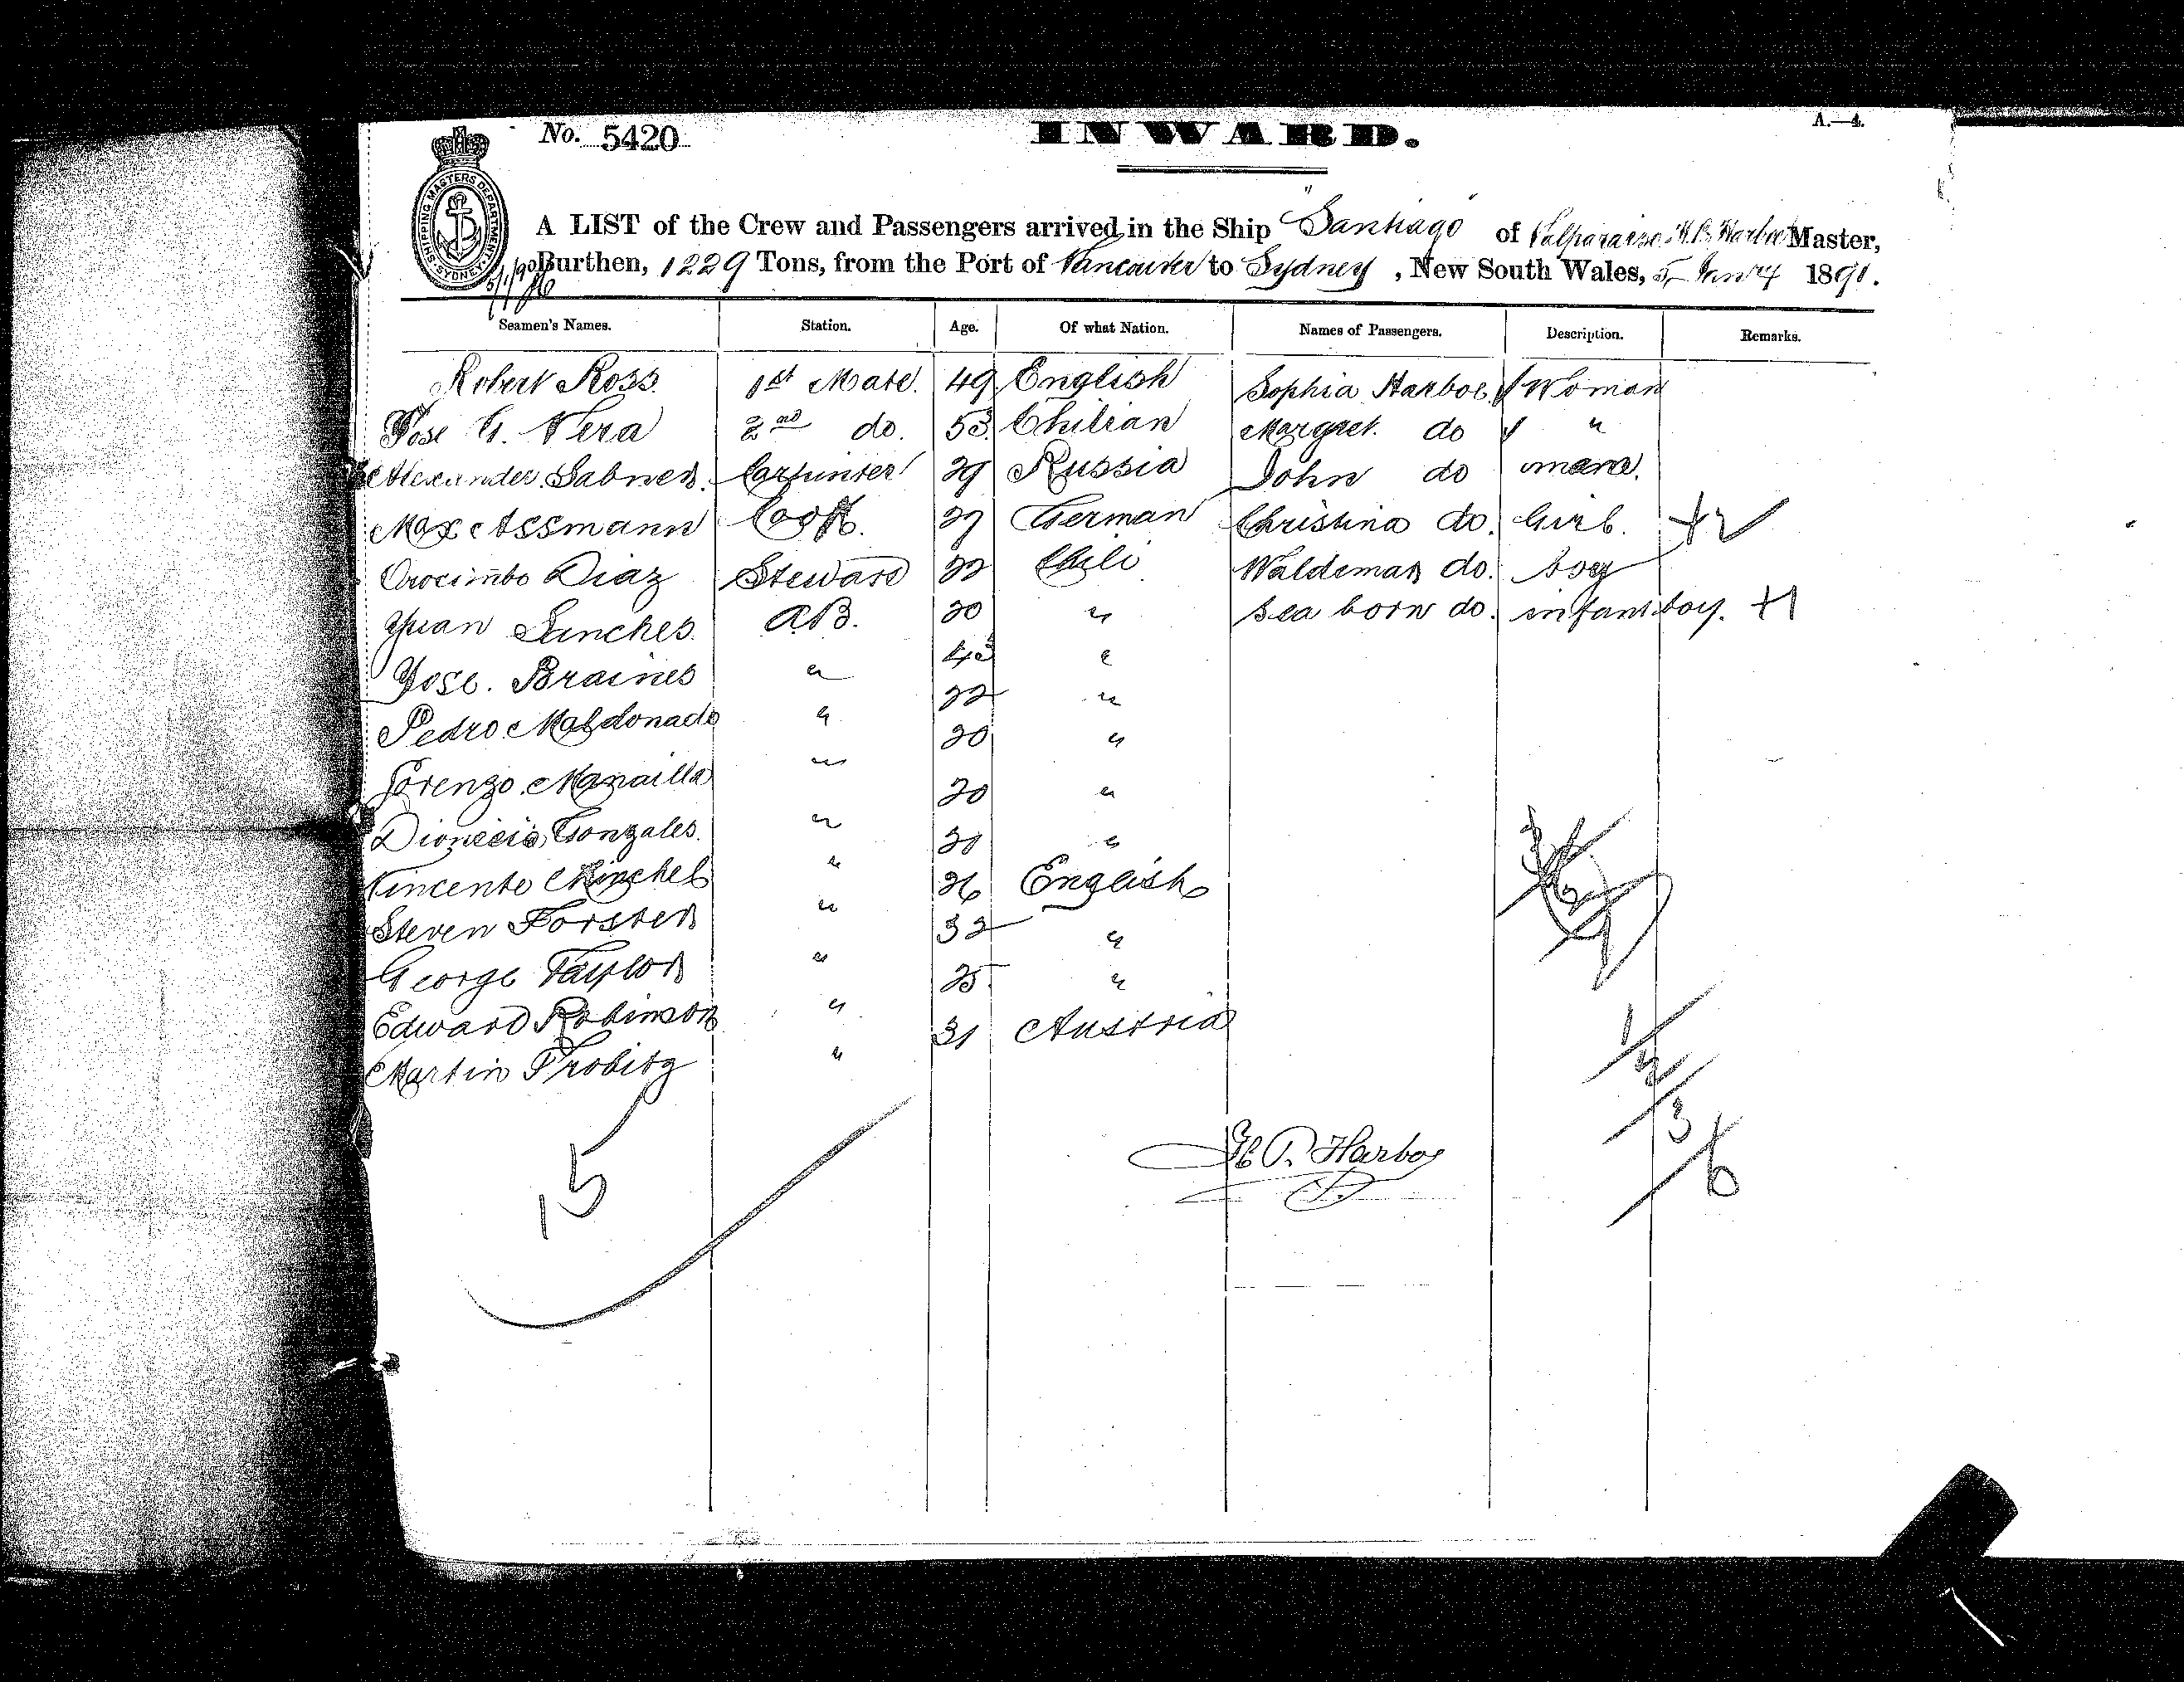 No. 5420
INWARD.
A.—4.
SHIPPING MASTERS DEPARTMENT SYDNEY
A LIST of the Crew and Passengers arrived in the Ship "Santiago" of Valparaiso, Master,
Burthen, 1229 Tons, from the Port of Vancouver to Sydney, New South Wales, 5 1890.
Seamen's Names. Station. Age. Of what Nation. Names of Passengers. Description. Remarks.
Robert Ross. 1st Mate. 49 English Sophia Harboe Woman
Jose G. Vera 2nd do. 53 Chilian Margret. do "
Alexander Carpinter 29 Russia John do
Max Assmann Cook. 29 German Christina do. Girl. +2
Orocimbo Diaz Steward 22 Chili Waldemar do. boy
Yuan Sanches. A.B. 20 " Sea born do. infant boy. +1
Yose. Braines " 43 "
Pedro Maldonado " 22 "
Lorenzo. Manailla " 20 "
Dionicio Gonzales. " 20 "
Vincente " 21 "
Steven Forster " 26 English
George Taylor " 32 "
Edward Robinson " 25 "
Martin Probitz " 31 Austria
15
H P. Harboe
1/
2/
3/6